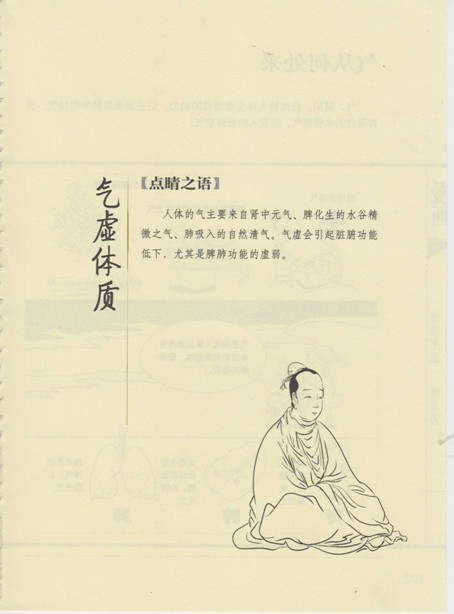 气虚体质
【点睛之语】
人体的气主要来自肾中元气、脾化生的水谷精
微之气、肺吸入的自然清气。气虚会引起脏腑功能
低下，尤其是脾肺功能的虚弱。